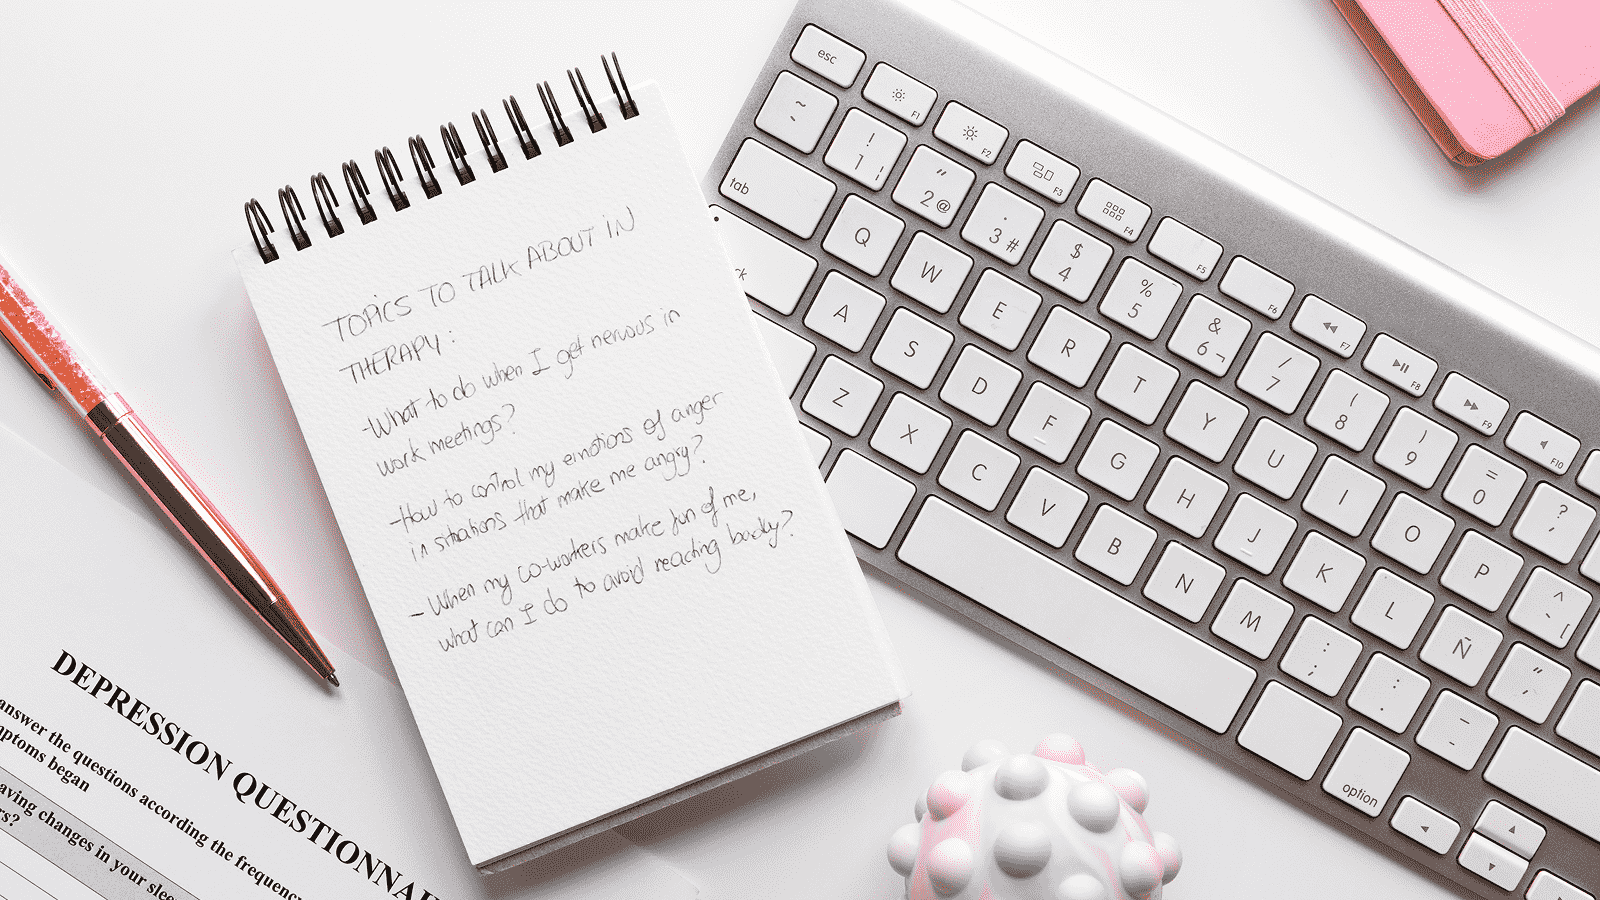 TOPICS TO TALK ABOUT IN
THERAPY:
-What to do when I get nervous in
work meetings?
-How to control my emotions of anger
in situations that make me angry?
- When my co-workers make fun of me,
what can I do to avoid reacting badly?
DEPRESSION QUESTIONNAI
answer the questions according the frequenc
mptoms began
aving changes in your slee
rs?
esc
F1
F2
F3
F4
F5
F6
F7
F8
F9
F10
~
! 1 ¦
" 2 @
· 3 #
$ 4
% 5
& 6 ¬
/ 7
( 8
) 9
= 0
? ;
tab
Q W E R T Y U I O P ^ ` [
A S D F G H J K L Ñ
Z X C V B N M ; , : . _ -
option